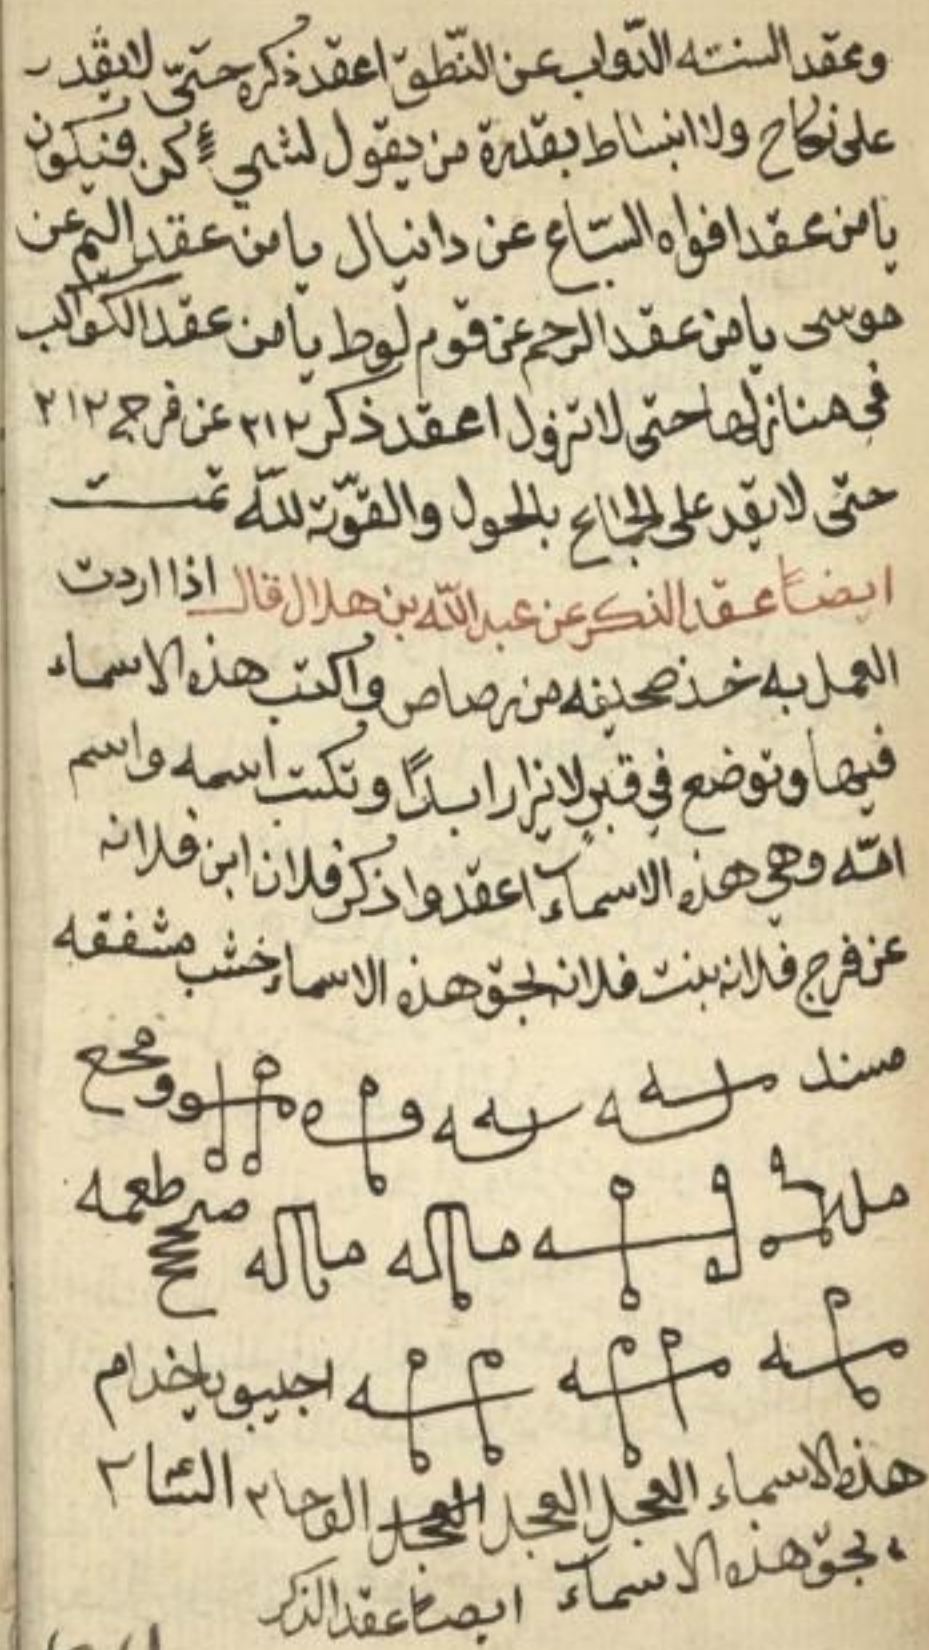 وعقد السنته الدّواب عن النّطق اعقد ذكره حتىّ لايقد ر
على نكاح ولا انبساط بقدرة من يقول لشي ءٍ كن فيكون
يا من عقد افواه السّباع عن دانيال يا من عقد اليم عن
موسى يا من عقد الرحم عن قوم لوط يا من عقد الكواكب
في منازلها حتى لا تزول اعقد ذكر ٢١٢ عن فرج ٢١٢
حتى لا يقد على الجماع بالحول والقوّة لله تمت
ايضاً عقد الذكر عن عبد الله بن هلال قال اذا اردت
العمل به خذ صحيفه من رصاص واكتب هذه الاسماء
فيها وتوضع في قبر لا يزار ابدًا وتكتب اسمه واسم
امّه وهي هذه الاسماء اعقدوا ذكر فلان ابن فلانه
عن فرج فلانه بنت فلانه بحق هذه الاسماء خشب مشفقه
مسند
اجيبو يا خدام
هذه الاسماء العجل العجل العجل الوحا ٢ السّاعا ٢
بحق هذه الاسماء ايضاً عقد الذكر